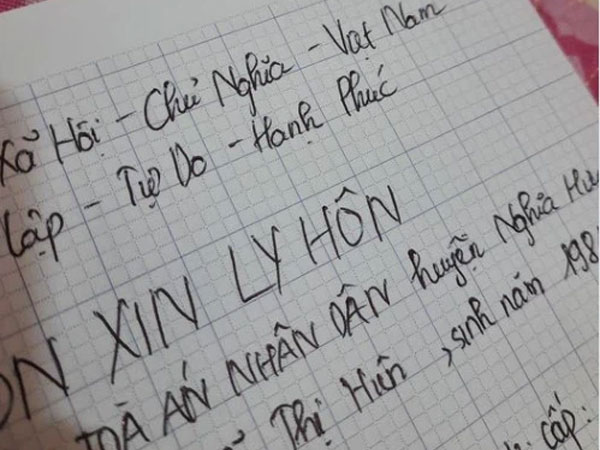 Xã Hội - Chủ Nghĩa - Vạt Nam
Lập - Tự Do - Hanh Phúc
ƠN XIN LY HÔN
TOÀ ÁN NHÂN DÂN huyện Nghĩa Hư
Thị Hiền , sinh năm 198
cấp :